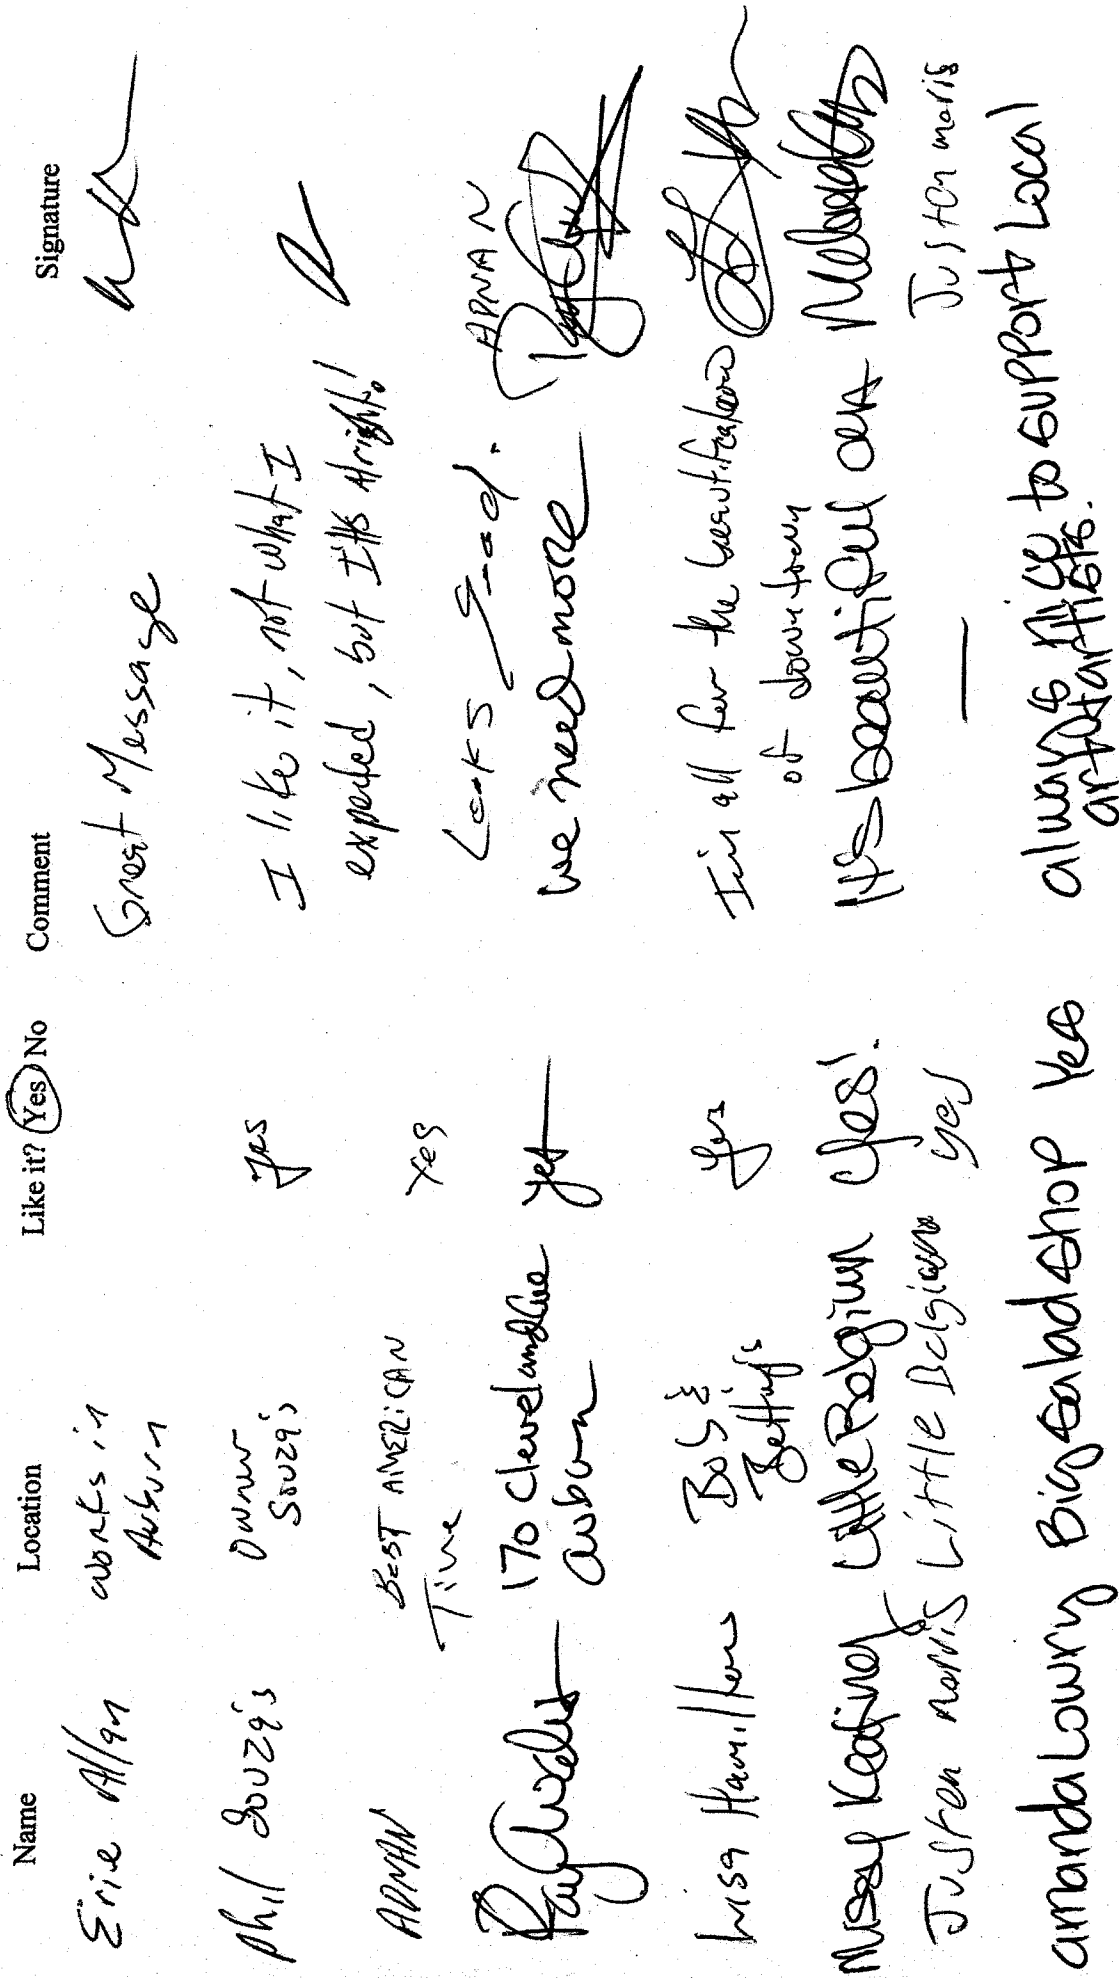 Name Location Like it? Yes No Comment Signature
Eric Allan works in Great Message
Auburn
Phil Souza's owner yes I like it, not what I
Souza's expected, but It's Alright!
ADNAN BEST AMERICAN Yes Looks good. ADNAN
Time
170 Cleveland Ave yes we need more
auburn
Lisa Hamilton BoS & yes I'm all for the beautification
Betting's of downtown
Missy Keating Little Belgium Yes! It's beautiful art
Justen morris Little Belgium yes — Justen morris
amanda Lowry Big Salad Shop Yes always nice to support Local
art & artists.